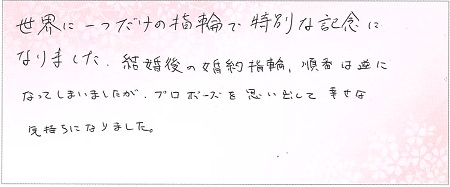 世界に一つだけの指輪で特別な記念に
なりました。結婚後の婚約指輪、順番は逆に
なってしまいましたが、プロポーズを思い出して幸せな
気持ちになりました。